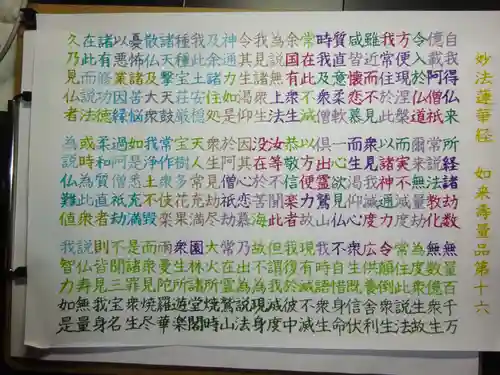 妙法蓮華経 如来寿量品第十六
自我得仏来 所経諸劫数 無量百千万
億載阿僧祇 常説法教化 無数億衆生
令入於仏道 爾来無量劫 為度衆生故
方便現涅槃 而実不滅度 常住此説法
我常住於此 以諸神通力 令顛倒衆生
雖近而不見 衆見我滅度 広供養舎利
咸皆懐恋慕 而生渇仰心 衆生既信伏
質直意柔軟 一心欲見仏 不自惜身命
時我及衆僧 倶出霊鷲山 我時語衆生
常在此不滅 以方便力故 現有滅不滅
余国有衆生 恭敬信楽者 我復於彼中
為説無上法 汝等不聞此 但謂我滅度
我見諸衆生 没在於苦海 故不為現身
令其生渇仰 因其心恋慕 乃出為説法
神通力如是 於阿僧祇劫 常在霊鷲山
及余諸住処 衆生見劫尽 大火所焼時
我此土安穏 天人常充満 園林諸堂閣
種種宝荘厳 宝樹多花果 衆生所遊楽
諸天撃天鼓 常作衆伎楽 雨曼陀羅華
散仏及大衆 我浄土不毀 而衆見焼尽
憂怖諸苦悩 如是悉充満 是諸罪衆生
以悪業因縁 過阿僧祇劫 不聞三宝名
諸有修功徳 柔和質直者 則皆見我身
在此而説法 或時為此衆 説仏寿無量
久乃見仏者 為説仏難値 我智力如是